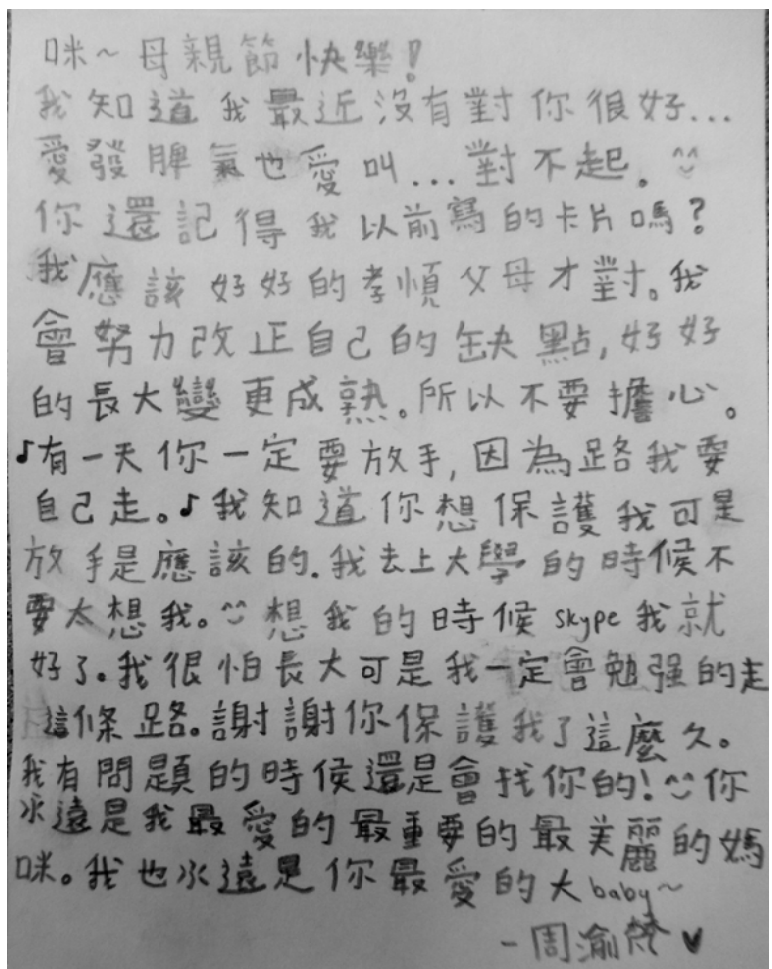 咪~母親節快樂!
我知道我最近沒有對你很好...
愛發脾氣也愛叫...對不起. ^^
你還記得我以前寫的卡片嗎?
我應該好好的孝順父母才對。我
會努力改正自己的缺點,好好
的長大變更成熟。所以不要擔心。
♪有一天你一定要放手,因為路我要
自己走。♪我知道你想保護我可是
放手是應該的.我去上大學的時候不
要太想我。^^想我的時候skype我就
好了。我很怕長大可是我一定會勉强的走
這條路。謝謝你保護我了這麼久。
我有問題的時候還是會找你的!^^你
永遠是我最愛的最重要的最美麗的媽
咪。我也永遠是你最愛的大baby~
-周渝 ♥